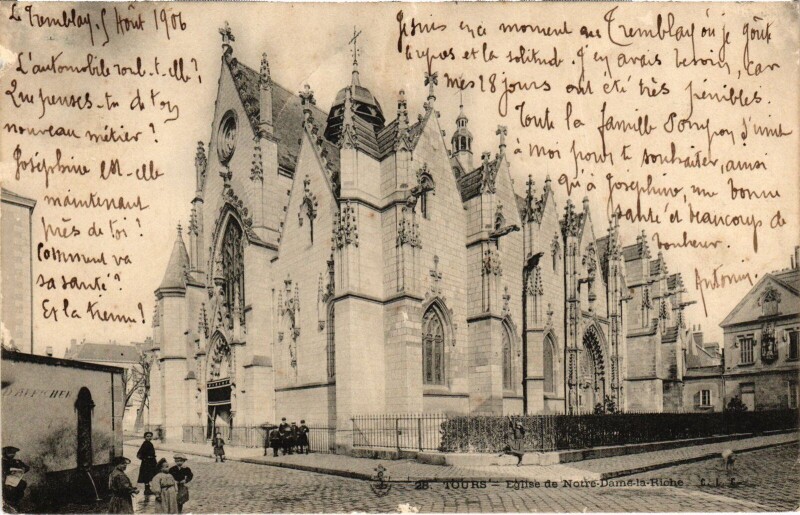 Le Tremblay, 5 Août 1906
L'automobile roul-t-elle?
Que penses-tu de ton
nouveau métier?
Joséphine est-elle
maintenant
près de toi?
Comment va
sa santé?
Et la tienne!
Je suis en ce moment au Tremblay où je goûte
repos et la solitude. J'en avais besoin, car
mes 28 jours ont été très pénibles.
Toute la famille s'unit
à moi pour te souhaiter, ainsi
qu'à Joséphine, une bonne
santé et beaucoup de
bonheur.
Antony
D'AFFICHER
28. TOURS - Eglise de Notre-Dame-la-Riche